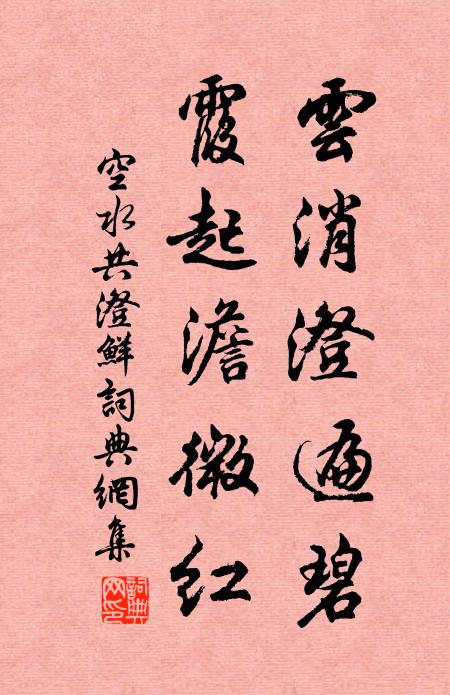 雲消澄遍碧
霞起澹微紅
空水共澄鮮詞典網集
詞典
網印